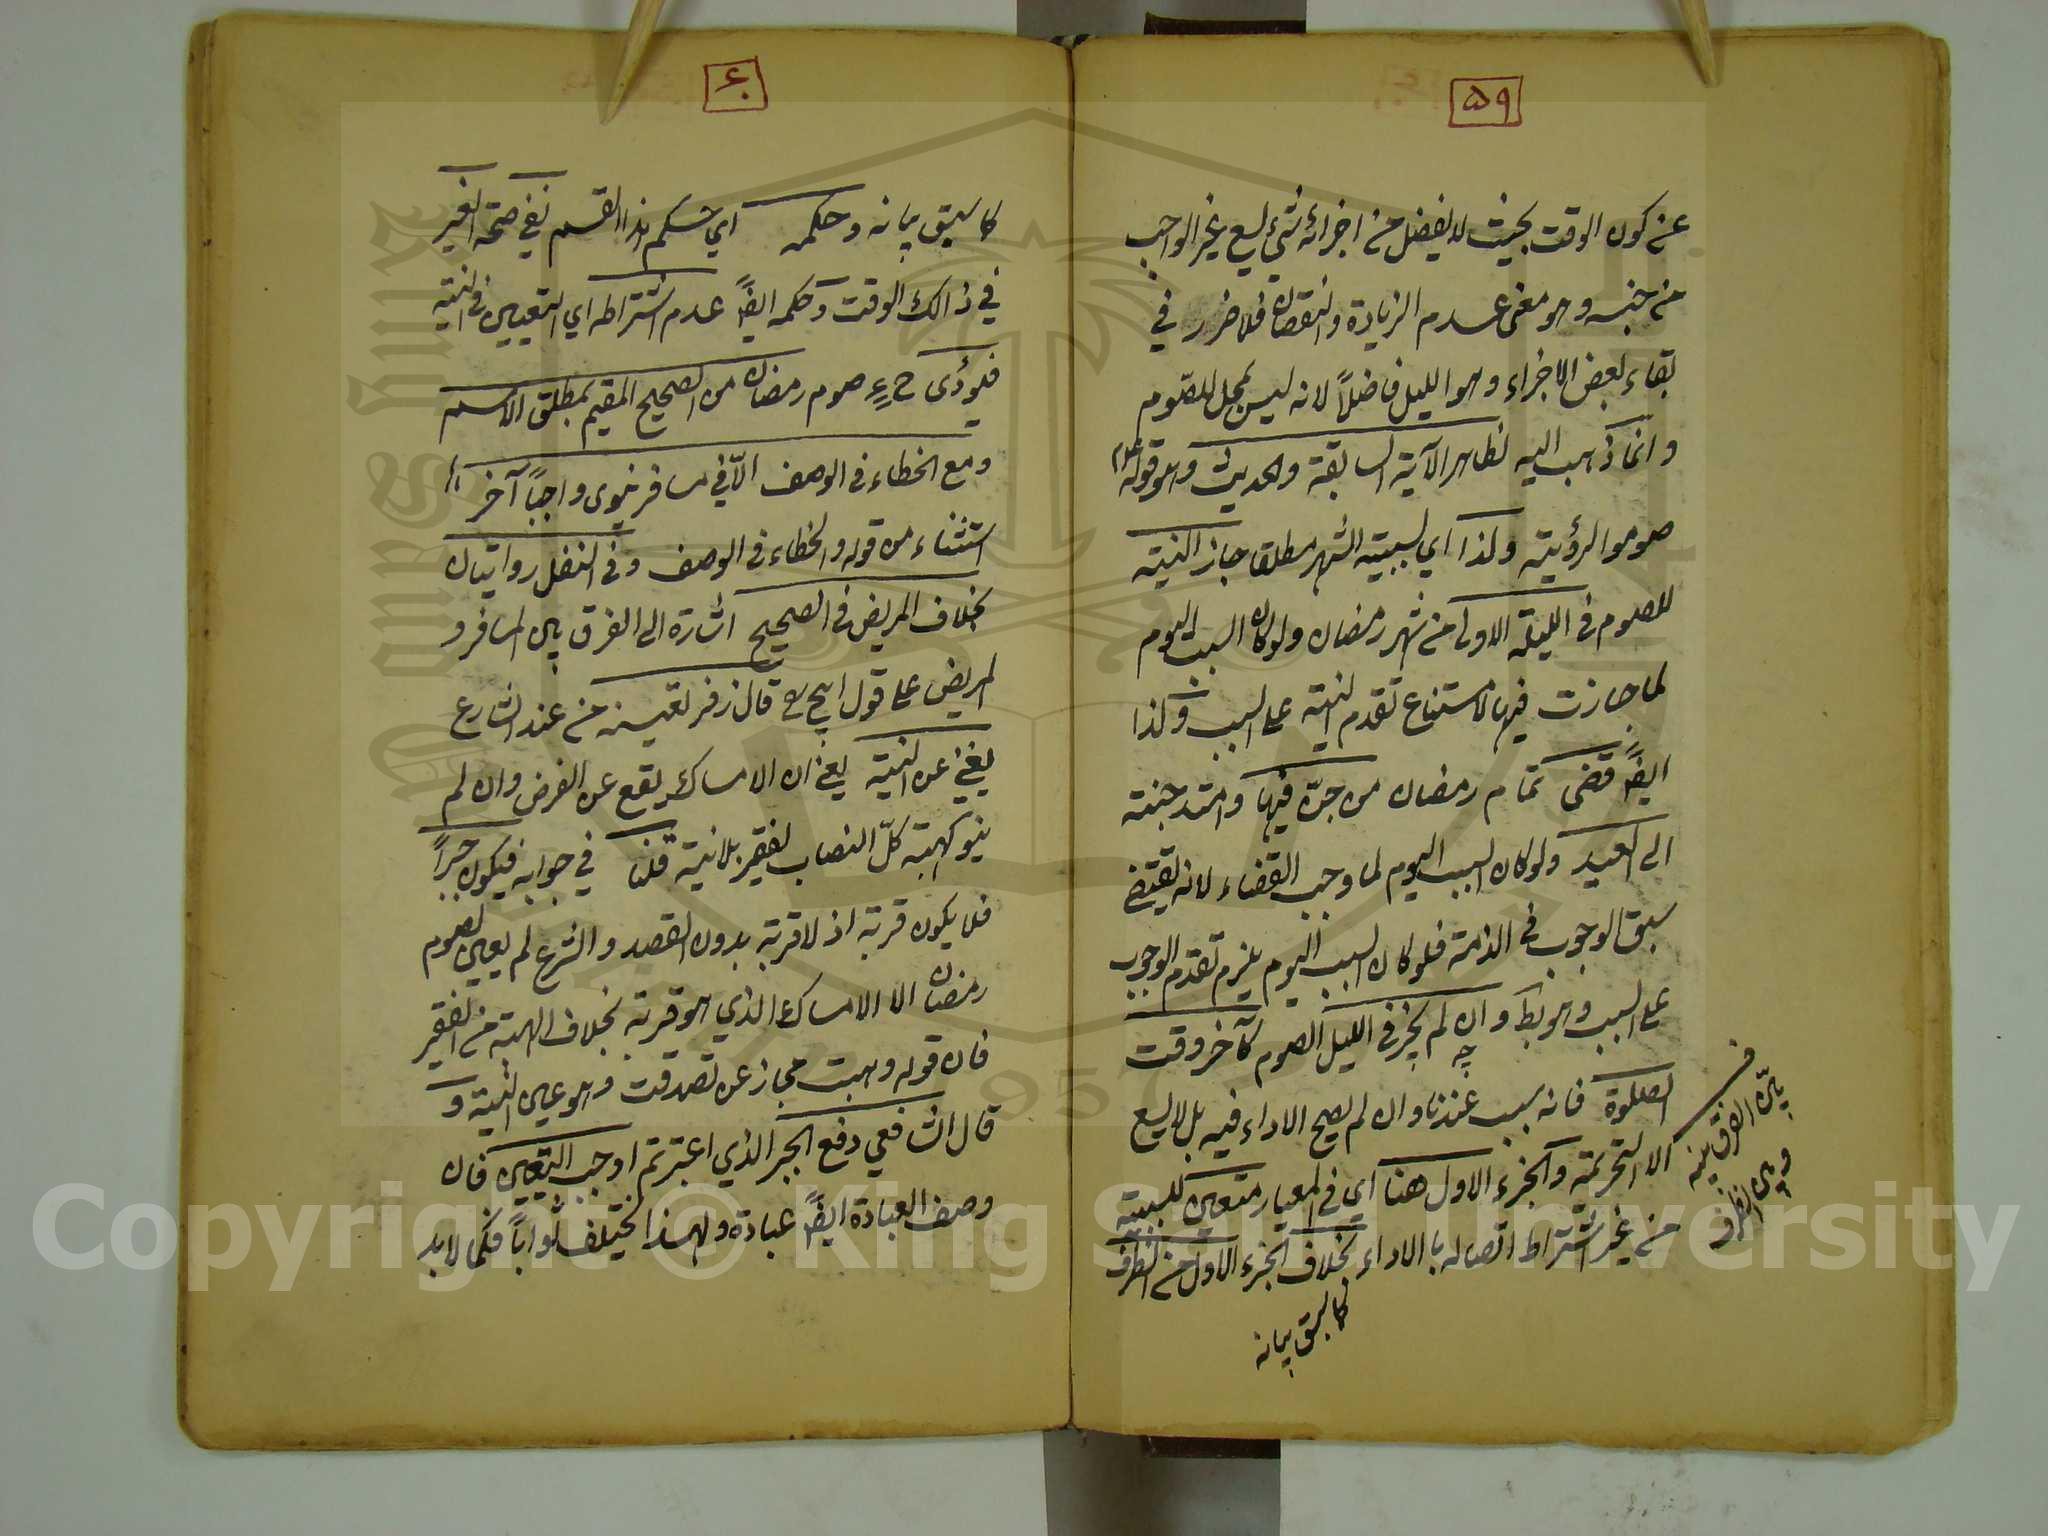 ٥٩
عن كون الوقت بحيث لا يفضل من اجزائه شيء يسع غير الواجب
من جنسه وهو معنى عدم الزيادة والنقصان فلا ضرر في
بقاء بعض الاجزاء وهو الليل فاضلاً لانه ليس بمحل للصّوم
وانما ذهب اليه لظاهر الآية السابقة والحديث وهو قوله
صوموا لرؤيته ولذا اي لسببية الشهر مطلقا جاز النية
للصوم في الليلة الاولى من شهر رمضان ولو كان السبب اليوم
لما جازت فيها لامتناع تقدم النية على السبب ولذا
ايضاً قضى تمام رمضان من جنّ فيها وامتد جنته
الى العيد ولو كان السبب اليوم لما وجب القضاء لانه يقتضي
سبق الوجوب في الذمة فلو كان السبب اليوم يلزم تقدم الوجوب
على السبب وهو بط وان لم يجز في الليل الصوم كآخر وقت
الصلوة فانه سبب عندنا وان لم يصح الاداء فيه بل لا يسع
الا التحريمة والجزء الاول هنا اي في المعيار متعين للسببية
من غير اشتراط اتصاله بالاداء بخلاف الجزء الاول من الظرف
كما سبق بيانه
بيان الفرق بينه
وبين الظرف
٦٠
كما سبق بيانه وحكمه اي حكم هذا القسم نفي صحة الغير
في ذالك الوقت وحكمه ايضاً عدم اشتراطه اي التعيين في النية
فيؤدى ح صوم رمضان من الصحيح المقيم بمطلق الاسم
ومع الخطاء في الوصف الّا في مسافر ينوى واجباً آخر
استثناء من قوله والخطاء في الوصف وفي النفل روايتان
بخلاف المريض في الصحيح اشارة الى الفرق بين المسافر و
المريض على قول ابيح قال زفر تعيينه من عند الشارع
يغني عن النية يعني ان الامساك يقع عن الفرض وان لم
ينو كهبة كلّ النصاب لفقير بلا نية قلنا في جوابه فيكون جبراً
فلا يكون قربة اذ لا قربة بدون القصد والشرع لم يعين لصوم
رمضان الا الامساك الذي هو قربة بخلاف الهبة من الفقير
فان قوله وهبت مجاز عن تصدقت وهو عين النية و
قال الشافعي دفع الجبر الذي اعتبرتم اوجب التعيين فان
وصف العبادة ايضاً عبادة ولهذا يختلف ثواباً فكما لا بد
Copyright © King Saud University
1957